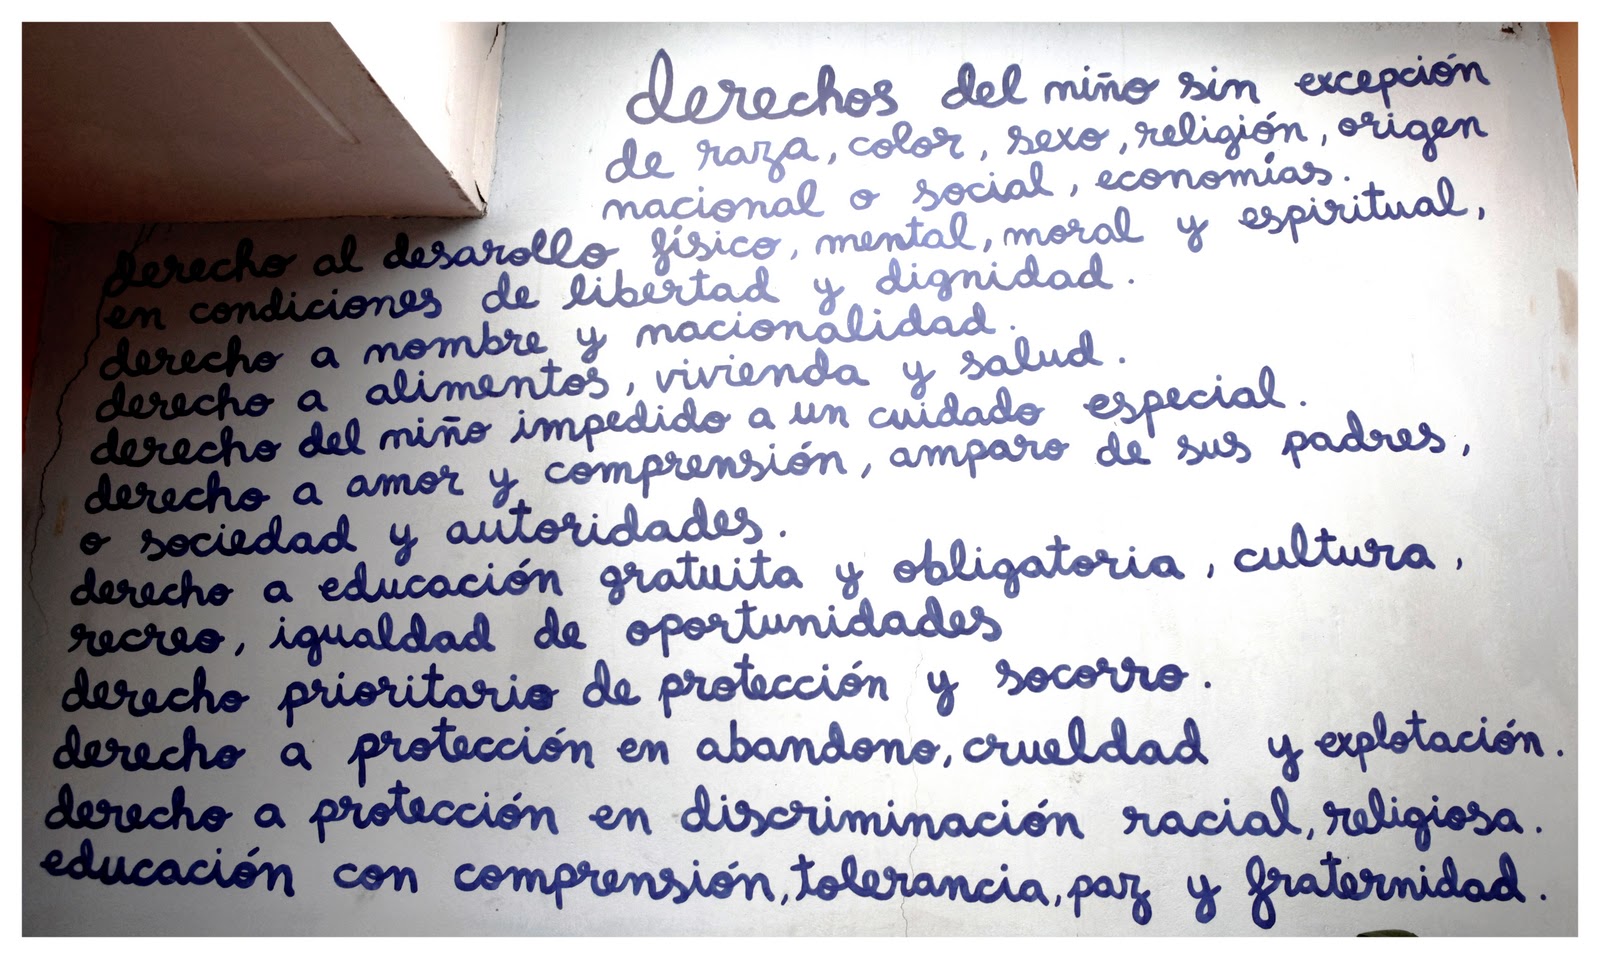 derechos del niño sin excepción
de raza, color, sexo, religión, origen
nacional o social, economías.
derecho al desarollo físico, mental, moral y espiritual,
en condiciones de libertad y dignidad.
derecho a nombre y nacionalidad.
derecho a alimentos, vivienda y salud.
derecho del niño impedido a un cuidado especial.
derecho a amor y comprensión, amparo de sus padres,
o sociedad y autoridades.
derecho a educación gratuita y obligatoria, cultura,
recreo, igualdad de oportunidades
derecho prioritario de protección y socorro.
derecho a protección en abandono, crueldad y explotación.
derecho a protección en discriminación racial, religiosa.
educación con comprensión, tolerancia, paz y fraternidad.